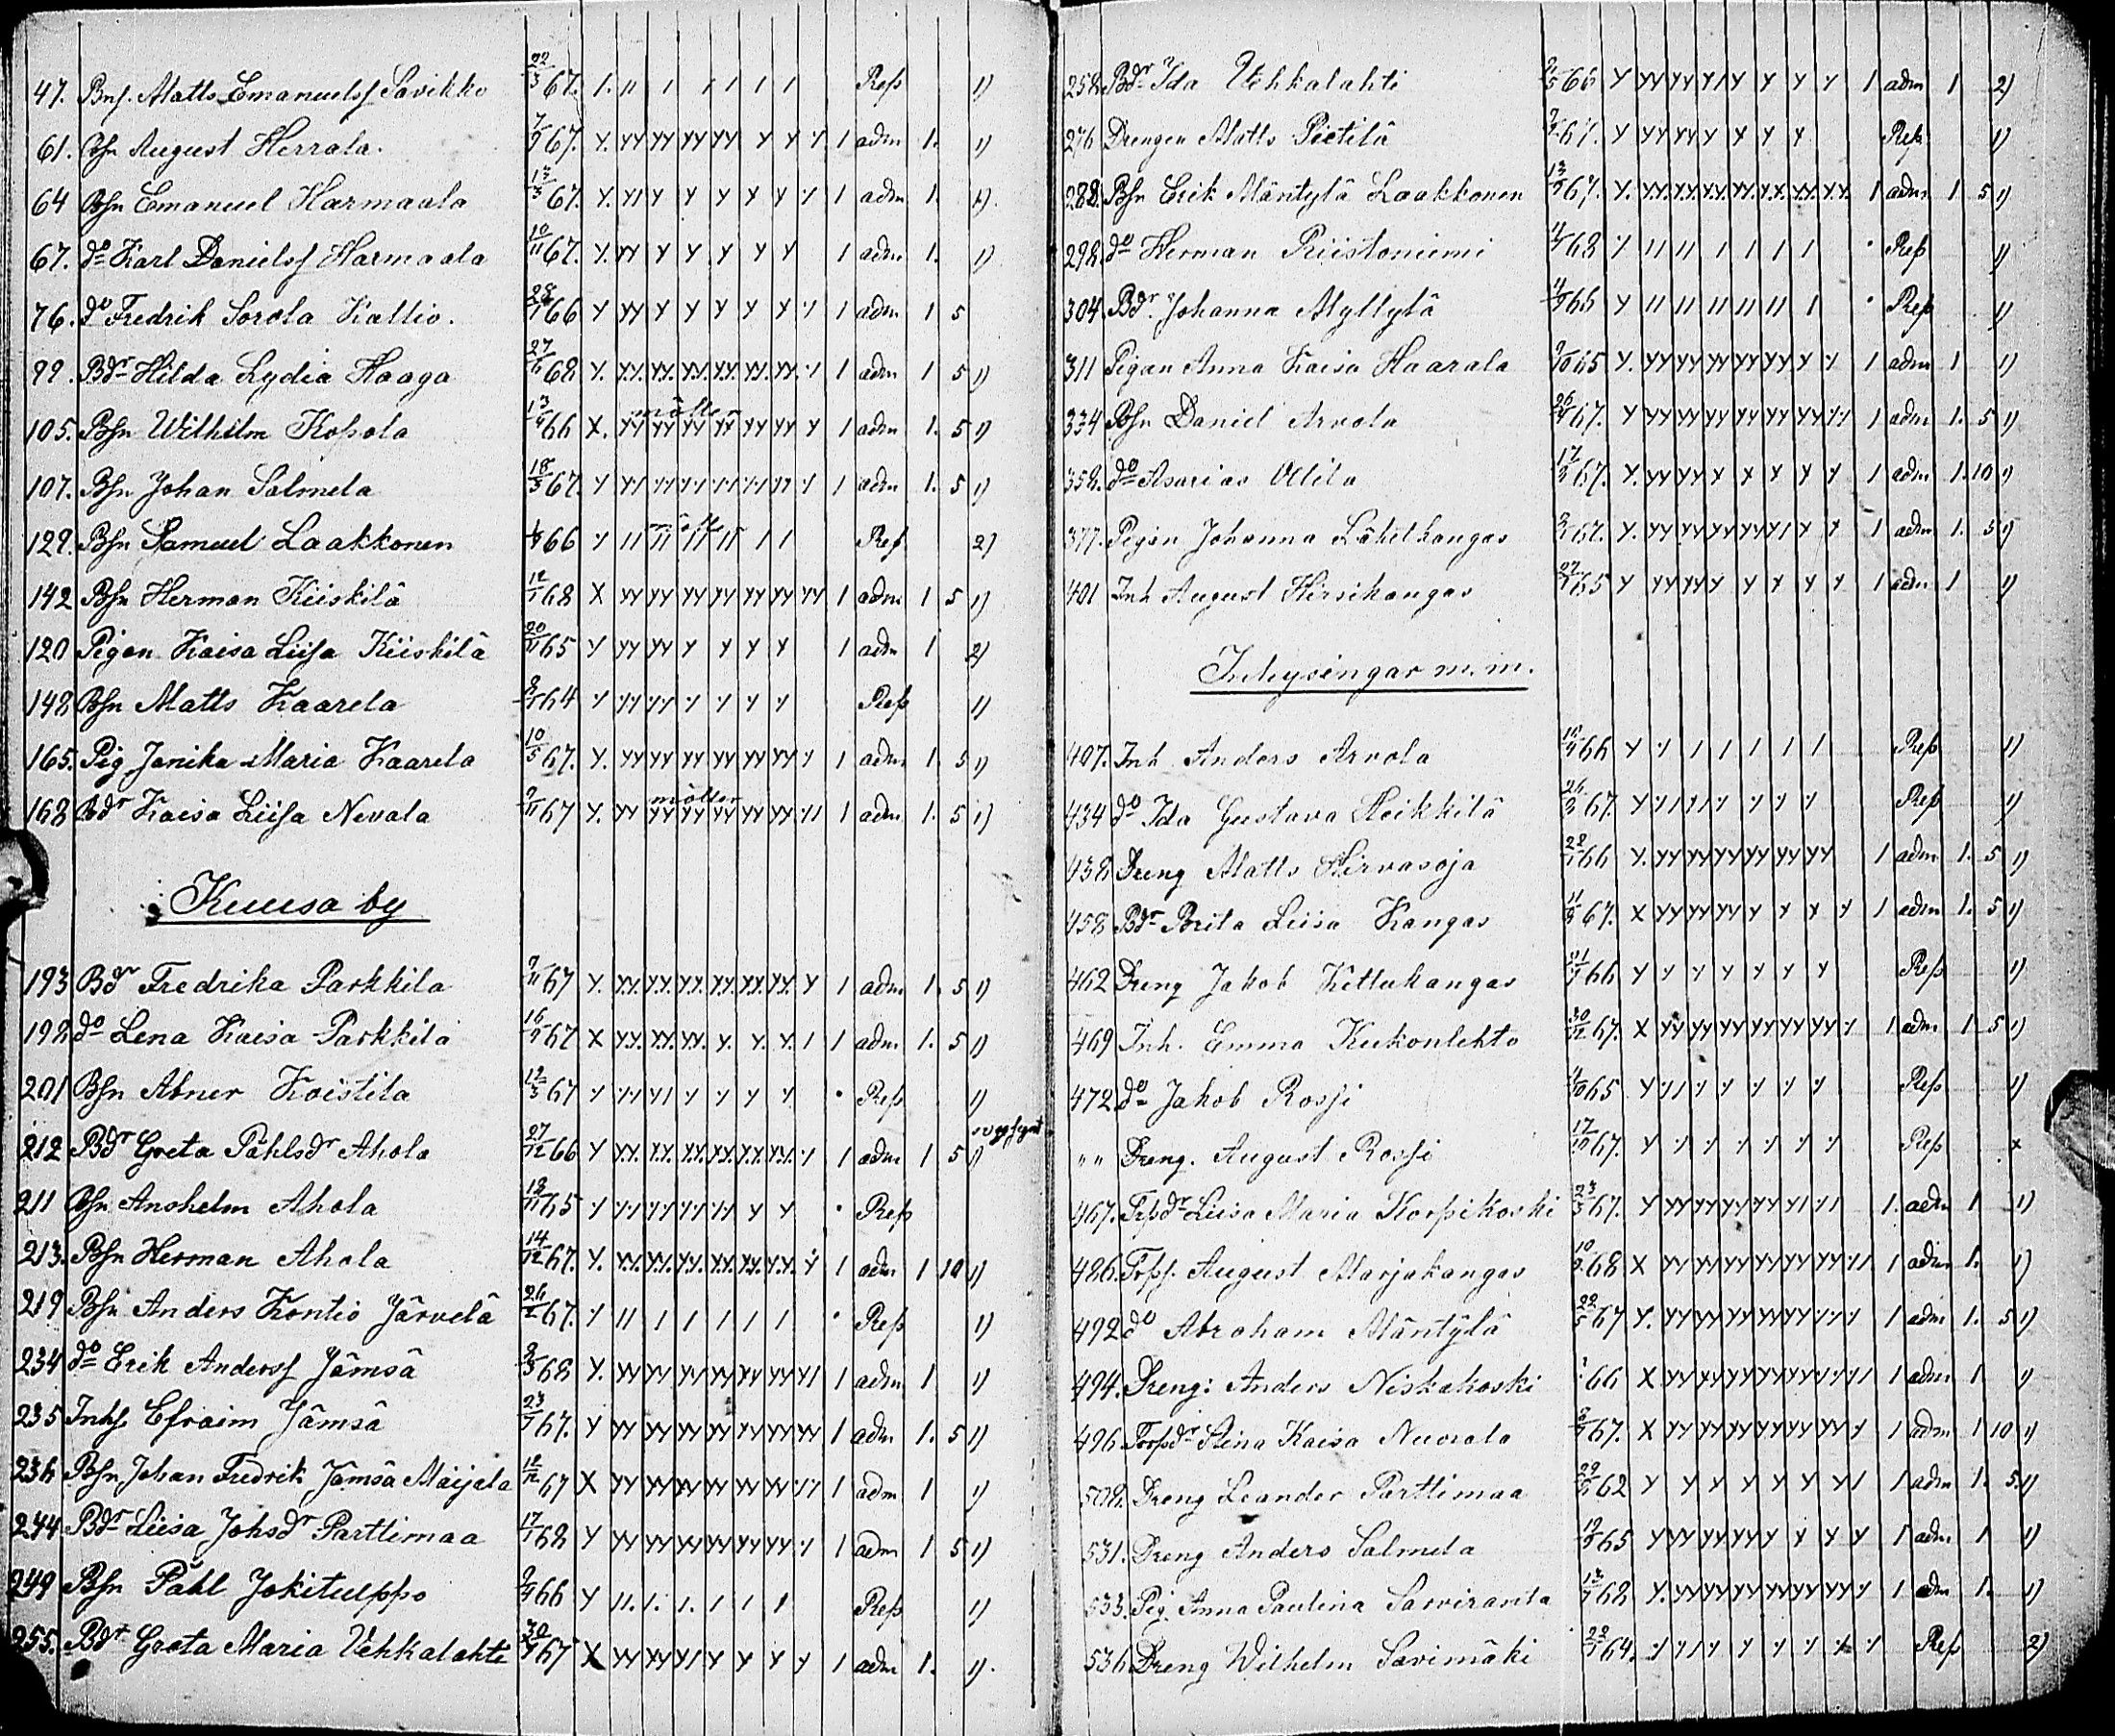 47. Bns. Matts Emanuelss Savikko 22/3 67. 1. 11 1 1 1 1 1 Reß 1)
61. Bsn August Herrala. 7/9 67. Y. YY YY YY YY Y Y Y 1 adm 1. 1)
64 Bsn Emanuel Harmaala 13/3 67. Y. Y1 Y Y Y Y Y Y 1 adm 1. 1)
67. do Karl Danielss Harmaala 10/11 67. Y. YY Y Y Y Y Y 1 adm 1. 1)
76. do Fredrik Sorola Kallio. 28/1 66 Y YY Y Y Y Y Y Y 1 adm 1 5
99. Bdr Hilda Lydia Haaga 27/6 68 Y. YY. YY. YY. YY. YY. YY. Y 1 adm 1 5 1)
105. Bsn Wilhelm Koßola 13/4 66 X. YY YY YY YY YY YY Y 1 adm 1. 5 1)
107. Bsn Johan Salmela 18/3 67. Y Y1 YY YY YY YY YY Y 1 adm 1. 5 1)
129. Bsn Samuel Laakkonen 66 Y 11 11 11 11 1 1 Reß 2)
142 Bsn Herman Kiiskilä 12/1 68 X YY YY YY YY YY YY YY 1 adm 1 5 1)
120 Pigan Kaisa Liisa Kiiskilä 20/11 65 Y YY YY Y Y Y Y 1 adm 1 2)
148 Bsn Matts Kaarela 64 Y YY YY Y Y Y Y Reß 1)
165. Pig Janika Maria Kaarela 10/5 67. Y. YY YY YY YY YY YY Y 1 adm 1. 5 1)
168 Bdr Kaisa Liisa Nevala 9/11 67 Y. YY YY YY YY YY YY Y1 1 adm 1. 5 1)
Kuusa by
193 Bdr Fredrika Parkkila 9/11 67 Y. YY. YY. YY. YY. YY. YY. Y 1 adm 1. 5 1)
198 do Lena Kaisa Parkkila 16/9 67 X YY. YY. YY. Y. Y. Y. 1 1 adm 1. 5 1)
201 Bsn Abner Koistila 12/3 67 Y YY Y1 Y Y Y Y Reß 1)
212 Bdr Greta Påhlsdr Ahola 27/12 66 Y YY. YY. YY. YY. YY. YY. Y 1 adm 1 5 1)
211 Bsn Anshelm Ahola 18/11 65 Y YY YY YY YY Y Y Reß
213. Bsn Herman Ahola 14/12 67. Y. YY. YY. YY. YY. YY. YY. Y 1 adm 1 10 1)
219 Bsn Anders Kontio Järvelä 26/2 67. Y 11 1 1 1 1 1 Reß 1)
234 do Erik Anderss Jämsä 8/3 68 Y. YY YY YY YY YY YY Y1 1 adm 1 1)
235 Inhs Efraim Jämsä 23/7 67. Y YY YY YY YY YY YY YY 1 adm 1. 5 1)
236 Bsn Johan Fredrik Jämsä Maijala 12/12 67 X YY YY YY YY YY YY YY 1 adm 1 1)
244 Bdr Liisa Johsdr Parttimaa 17/1 68 Y YY YY YY YY YY YY Y 1 adm 1 5 1)
249 Bsn Påhl Jokitulppo 9/4 66 Y 11. 1. 1. 1 1 1 Reß 1)
255. Bdr Greta Maria Vehkalahti 30/9 67 X YY YY Y1 Y Y Y Y 1 adm 1. 1).
258. Bdr Ida Vehkalahti 66 Y YY YY Y1 Y Y Y Y 1 adm 1 2)
276 Drengen Matts Pietilä 67. Y YY YY Y Y Y Y Reß 1)
288. Bsn Erik Mäntylä Laakkonen 13/5 67. Y. YY. YY. YY. YY. YY. YY. YY. 1 adm 1 5 1)
298. do Herman Riistoniemi 68 Y 11 11 1 1 1 1 Reß 1)
304. Bdr. Johanna Myllylä 65 Y 11 11 11 11 11 1 Reß 1)
311 Pigan Anna Kaisa Haarala 9/10 65 Y. YY YY YY YY YY Y Y 1 adm 1 1)
334 Bsn Daniel Arvola 67. Y YY YY YY YY YY YY YY 1 adm 1. 5 1)
358. do Asarias Ollila 17/3 67. Y. YY YY Y Y Y Y Y 1 adm 1. 10 1)
377. Pigan Johanna Lähilkangas 67. Y. YY YY YY YY Y1 Y Y 1 adm 1. 5 1)
401 Inh August Hirsikangas 65 Y YY YY Y Y Y Y Y 1 adm 1 1)
Inhysingar m. m.
407. Inh Anders Arvola 66 Y Y 1 1 1 1 1 Reß 1)
434 do Ida Gustava Heikkilä 67. Y Y1 Y1 Y Y Y Y Reß 1)
438 Dreng Matts Hirvasoja 66 Y. YY YY YY YY YY YY 1 adm 1. 5 1)
458 Bdr Brita Liisa Kangas 67. X YY YY YY Y Y Y Y 1 adm 1. 5 1)
462 Dreng Jakob Kettukangas 66 Y Y Y Y Y Y Y Reß 1)
469 Inh. Emma Kukonlehto 30/12 67. X YY YY YY YY YY YY Y 1 adm 1 5 1)
472 do Jakob Rossi 65 Y Y1 Y Y Y Y Y Reß 1)
" " Dreng. August Rossi 17/10 67. Y Y Y Y Y Y Y Reß x
467. Trpdr Liisa Maria Korpikoski 23/3 67. Y YY YY YY YY Y1 Y1 1. adm 1 1)
486. Torps. August Marjakangas 68 X YY YY YY YY YY YY Y1 1 adm 1. 1)
492 do Abraham Mäntylä 67 Y. YY YY YY YY YY YY YY 1 adm 1. 5 1)
494. Dreng: Anders Niskakoski 66 X YY YY YY YY YY YY Y1 1 adm 1 1)
496. Torpdr Stina Kaisa Nuorala 67. X YY YY YY YY YY YY Y 1 adm 1 10 1)
508. Dreng Leander Parttimaa 62 Y Y Y Y Y Y Y Y1 1 adm 1. 5 1)
531. Dreng Anders Salmela 65 Y YY YY YY Y Y Y Y 1 adm 1 1)
533. Pig. Anna Paulina Sarviranta 68 Y. YY YY YY YY YY YY Y 1 adm 1. 1)
536 Dreng Wilhelm Savimäki 64. Y Y1 Y Y Y Y Y Y Reß 2)